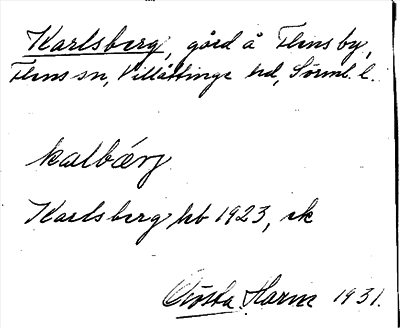 Karlsberg, gård å Flensby,
Flens sn, Villåttinge hd, Sörml. l.
kalbárj
Karlsberg hb 1923, ek
Gösta Harm 1931.